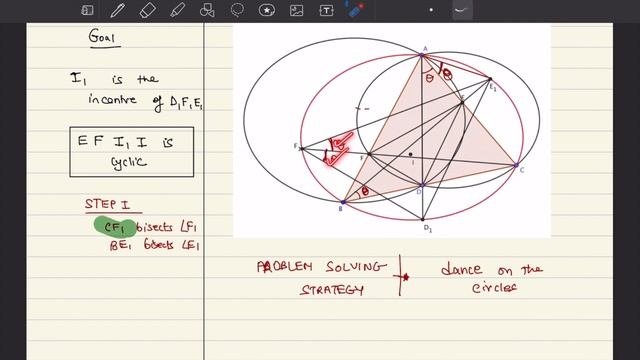 Goal
I₁ is the
incentre of D₁F₁E₁
E F I₁ I is
cyclic
STEP I
CF₁ bisects ∠F₁
BE₁ bisects ∠E₁
A
θ
θ
E₁
E
F₁
F
I
C
θ
D
B
D₁
PROBLEM SOLVING
STRATEGY
dance on the
circles